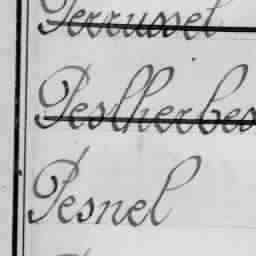 Perrusset
Peslherbes
Pesnel